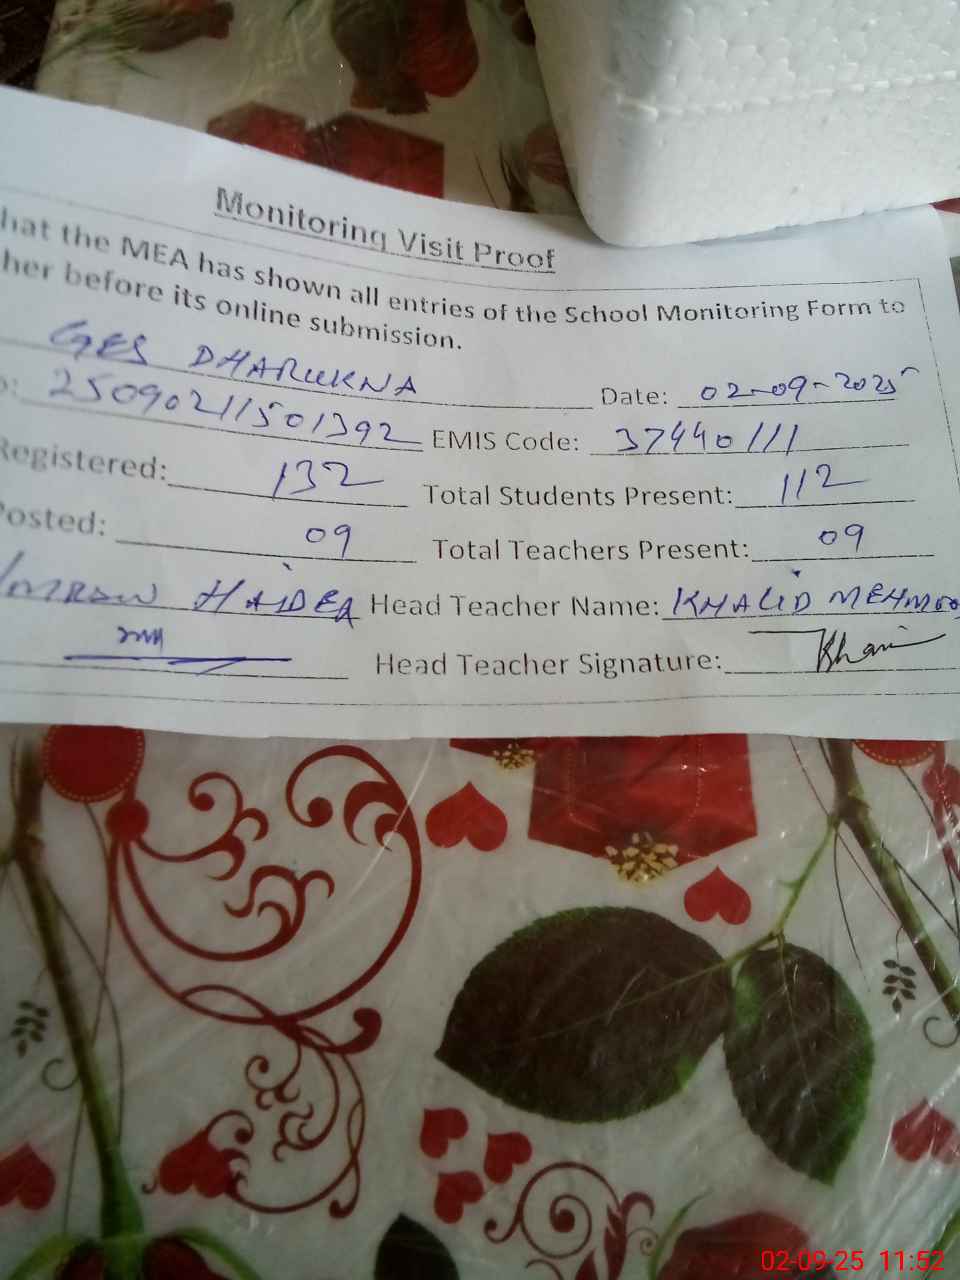 Monitoring Visit Proof
hat the MEA has shown all entries of the School Monitoring Form to
her before its online submission.
GES DHARUKNA Date: 02-09-2025
25090211501392 EMIS Code: 37440111
Registered: 132 Total Students Present: 112
Posted: 09 Total Teachers Present: 09
IMRAN HAIDER Head Teacher Name: KHALID MEHMOO
Head Teacher Signature:
02-09-25 11:52